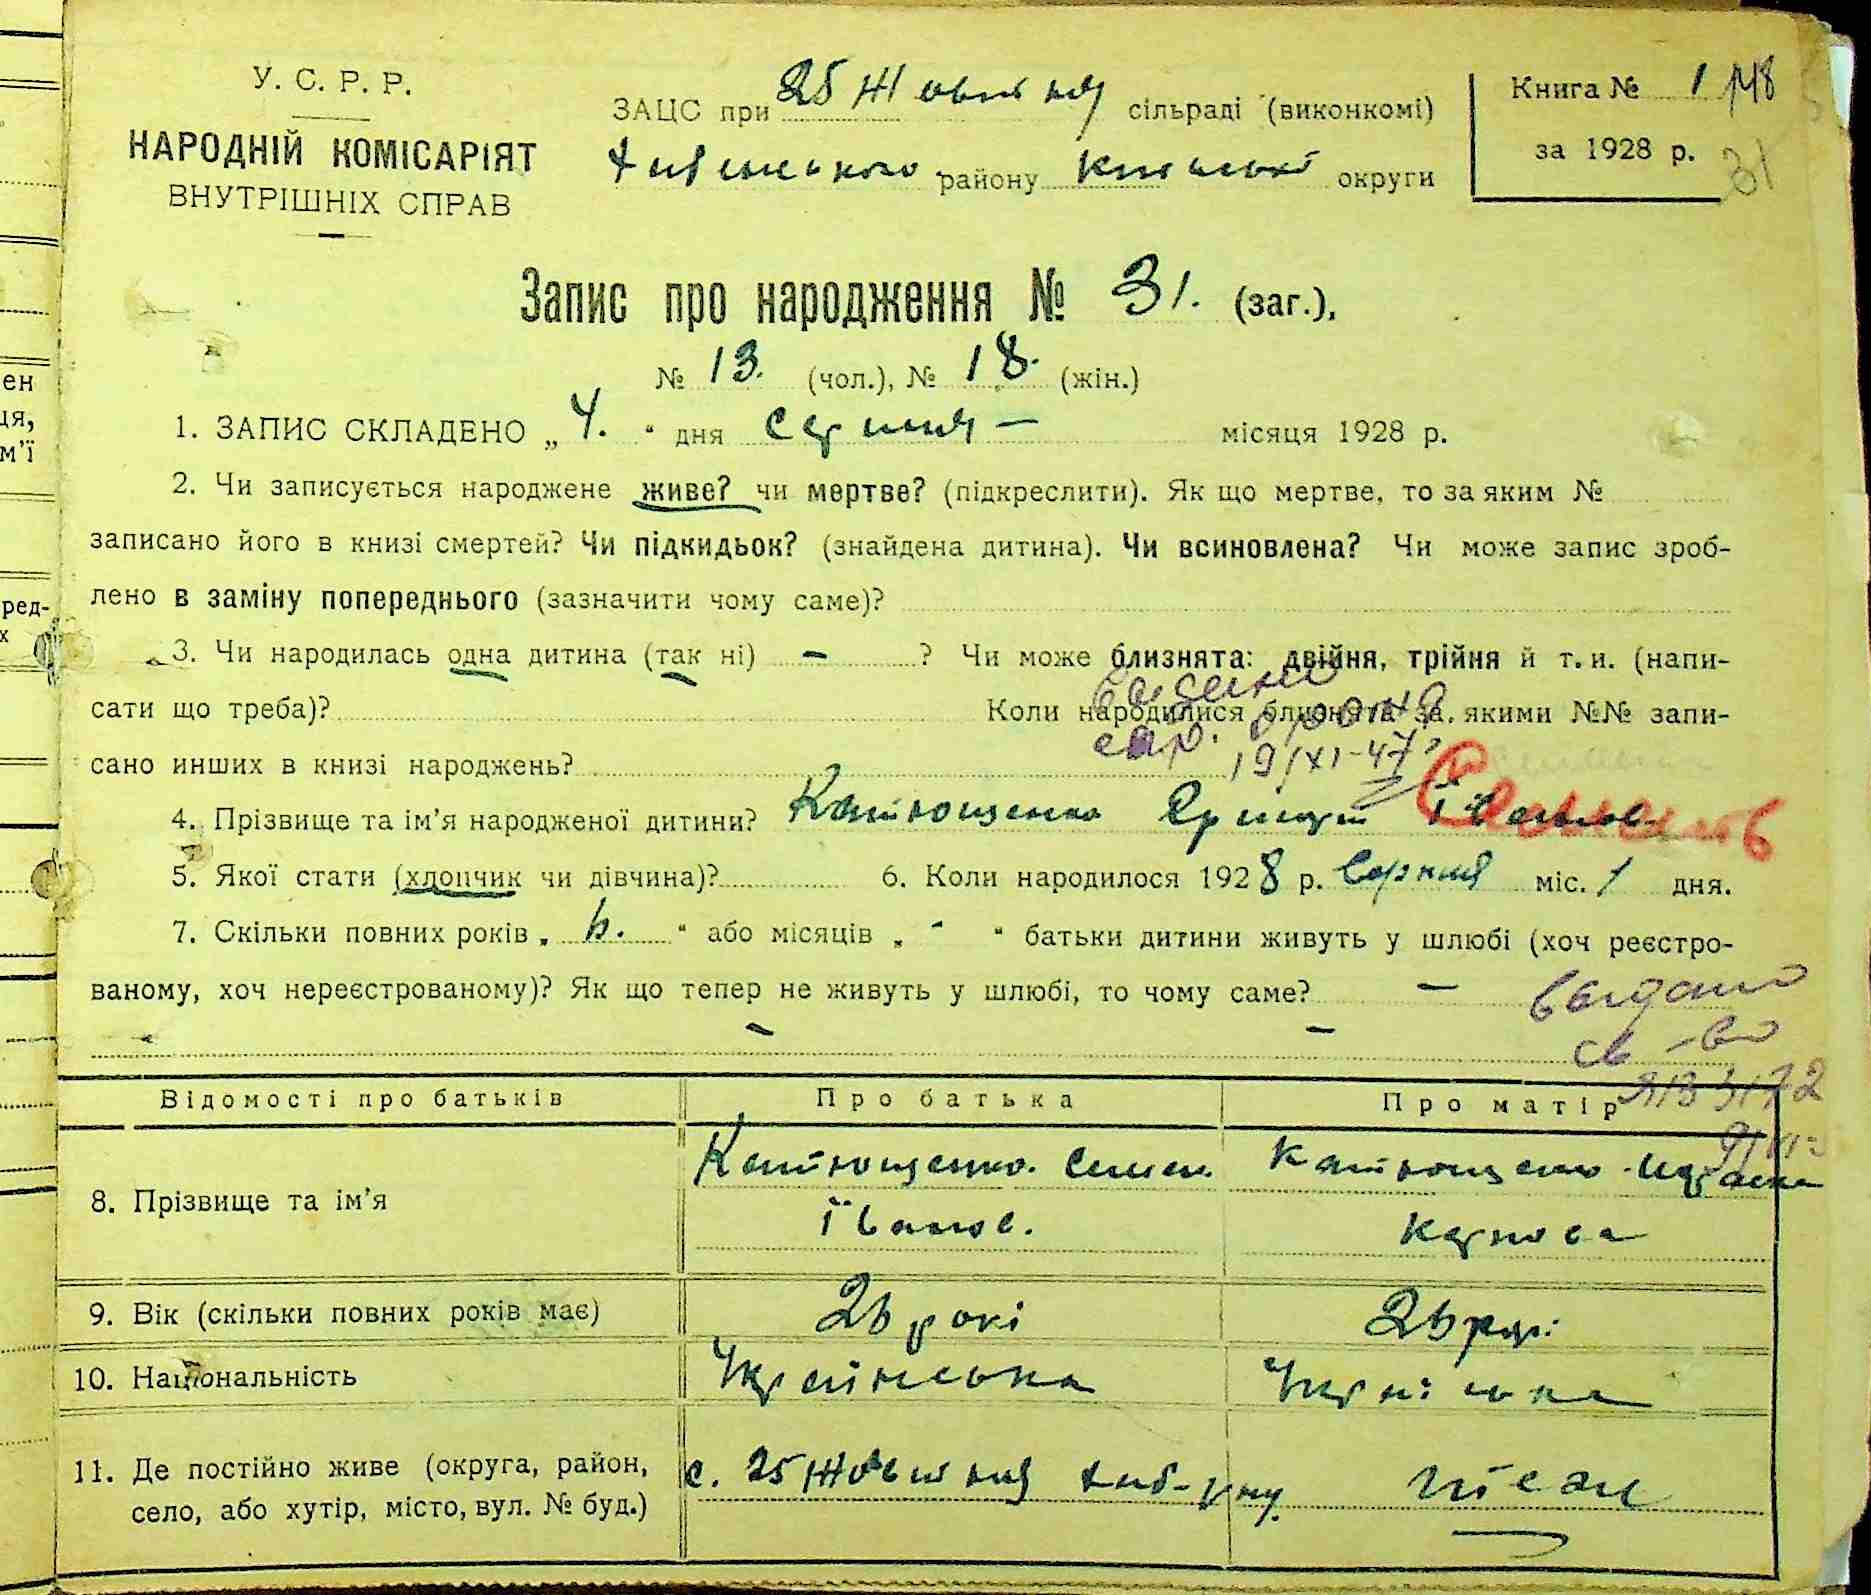 У. С. Р. Р.
НАРОДНІЙ КОМІСАРІЯТ
ВНУТРІШНІХ СПРАВ
ЗАЦС при 25 Жовтня сільраді (виконкомі)
району Київської округи
Книга № 1 148
за 1928 р. 31
Запис про народження № 31. (заг.),
№ 13. (чол.), № 18. (жін.)
1. ЗАПИС СКЛАДЕНО „ 4. “ дня серпня — місяця 1928 р.
2. Чи записується народжене живе? чи мертве? (підкреслити). Як що мертве, то за яким №
записано його в книзі смертей? Чи підкидьок? (знайдена дитина). Чи всиновлена? Чи може запис зроб-
лено в заміну попереднього (зазначити чому саме)?
3. Чи народилась одна дитина (так ні) — ? Чи може близнята: двійня, трійня й т. и. (напи-
сати що треба)? Коли народилися близнята за якими №№ запи-
сано инших в книзі народжень?
19/XI-47
4. Прізвище та ім’я народженої дитини? Катющенко
5. Якої стати (хлопчик чи дівчина)? 6. Коли народилося 1928 р. Серпня міс. 1 дня.
7. Скільки повних років „ “ або місяців „ - “ батьки дитини живуть у шлюбі (хоч реєстро-
ваному, хоч нереєстрованому)? Як що тепер не живуть у шлюбі, то чому саме? —
— —
выдано
св-во
Відомості про батьків Про батька Про матір
8. Прізвище та ім’я Катющенко Семен Катющенко
Іванов.
9. Вік (скільки повних років має) 26 рокі 26 рокі
10. Національність Українська Українська
11. Де постійно живе (округа, район, с. 25 Жовтня
село, або хутір, місто, вул. № буд.)